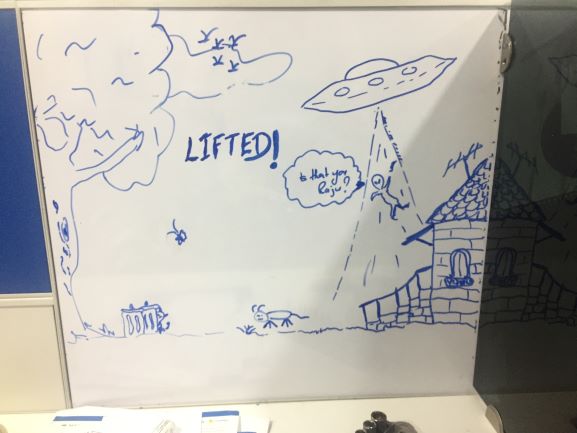 LIFTED!
Is that you
Raju?